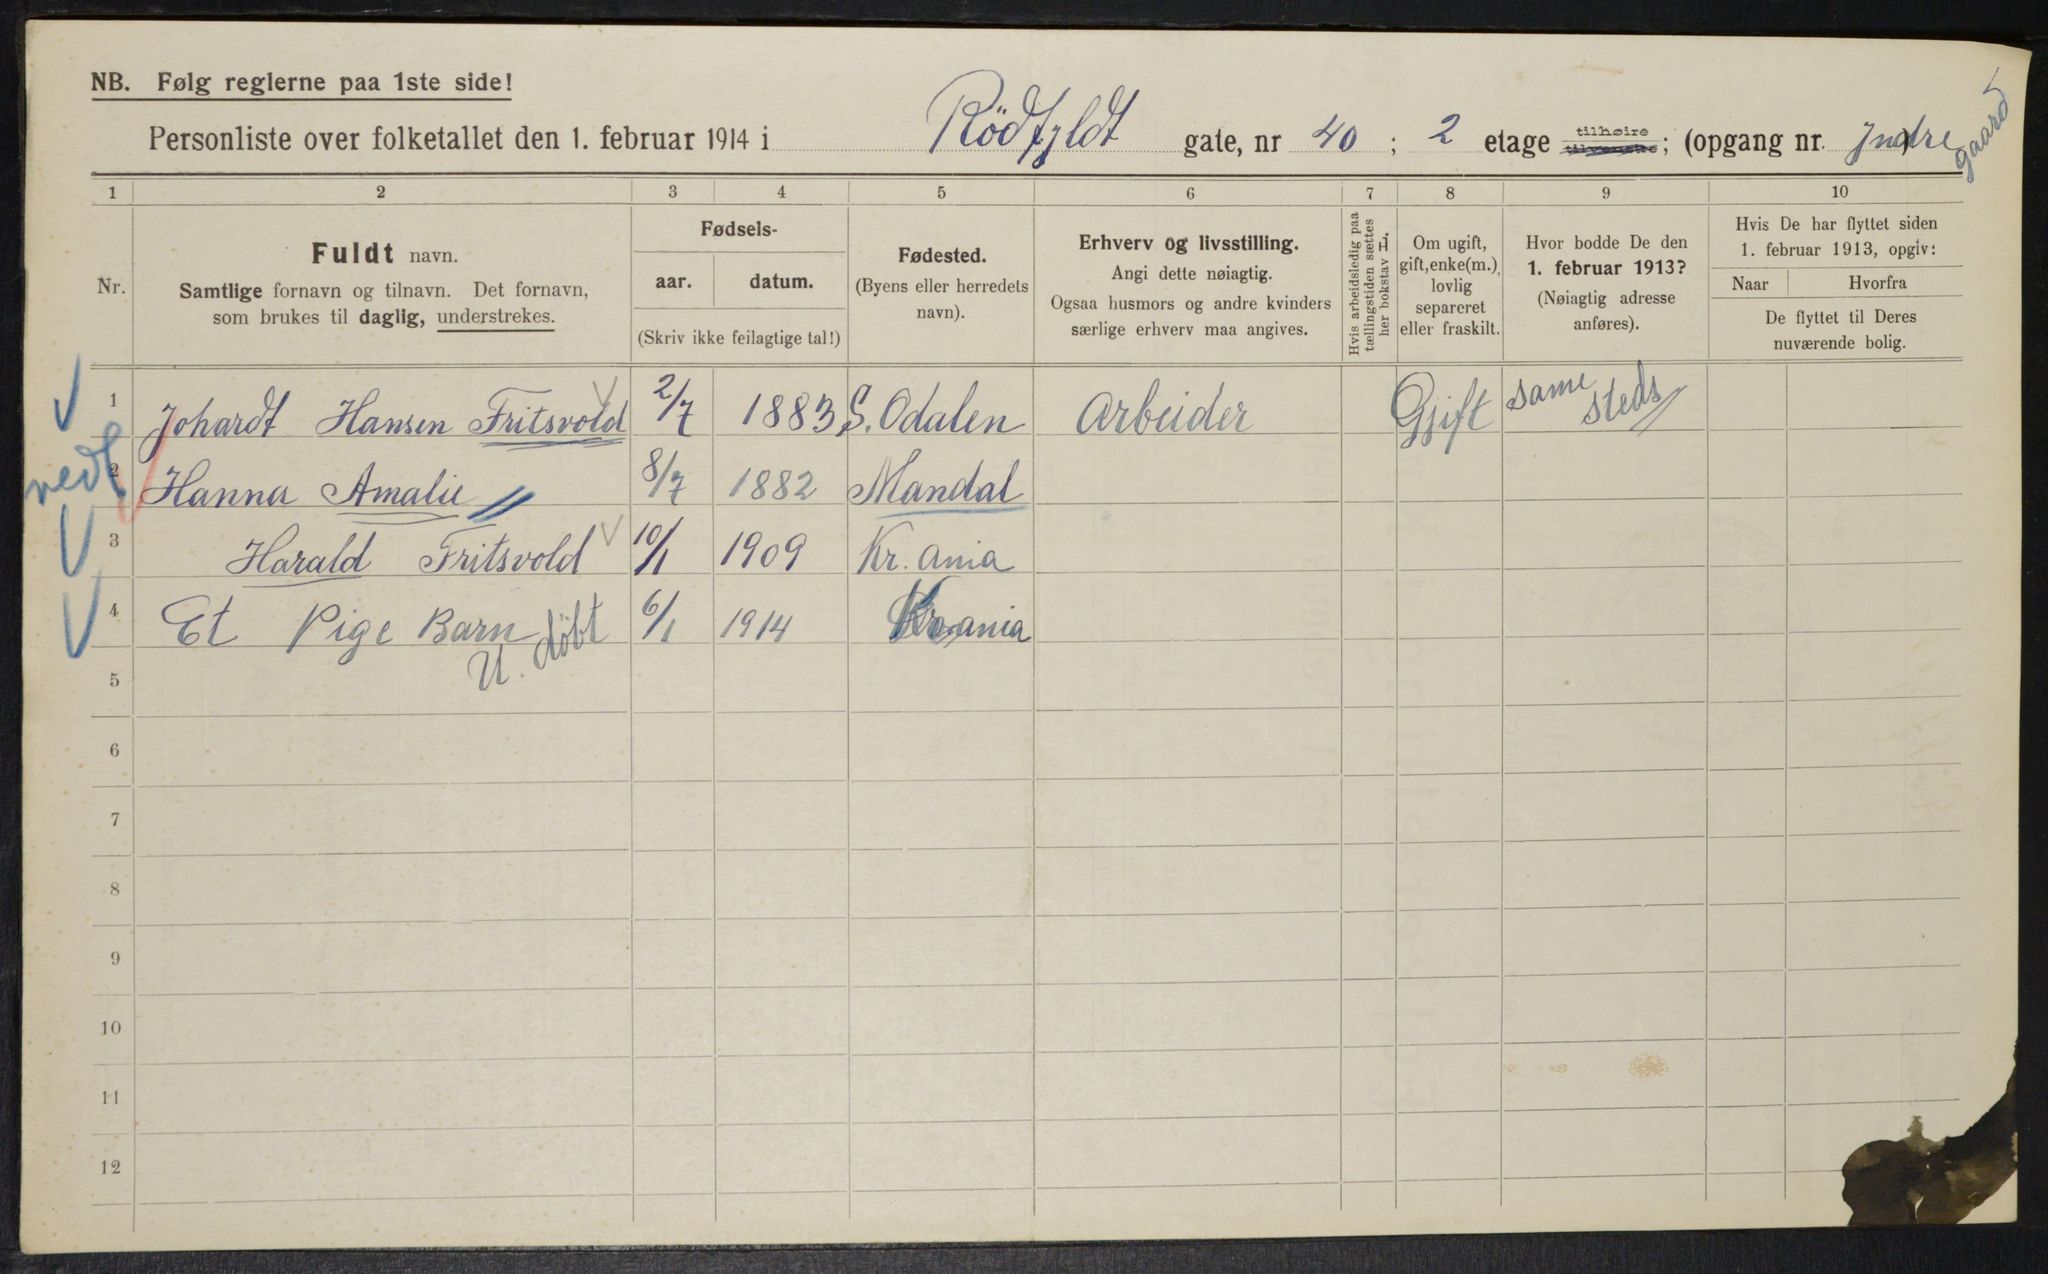 NB. Følg reglerne paa 1ste side!
Personliste over folketallet den 1. februar 1914 i Rödfyldt gate, nr 40; 2 etage tilhøire tilvenstre; (opgang nr. Indre gaard)
1 2 3 4 5 6 7 8 9 10
Nr.
Fuldt navn.
Samtlige fornavn og tilnavn. Det fornavn,
som brukes til daglig, understrekes.
Fødsels-
aar. datum.
(Skriv ikke feilagtige tal!)
Fødested.
(Byens eller herredets
navn).
Erhverv og livsstilling.
Angi dette nøiagtig.
Ogsaa husmors og andre kvinders
særlige erhverv maa angives.
Hvis arbeidsledig paa
tællingstiden sættes
her bokstav L.
Om ugift,
gift, enke(m.),
lovlig
separeret
eller fraskilt.
Hvor bodde De den
1. februar 1913?
(Nøiagtig adresse
anføres).
Hvis De har flyttet siden
1. februar 1913, opgiv:
Naar Hvorfra
De flyttet til Deres
nuværende bolig.
1 Johardt Hansen Fritsvold 2/7 1883 S. Odalen Arbeider Gift samme steds
nedf. 2 Hanna Amalie 〃 8/7 1882 Mandal
3 Harald Fritsvold 10/1 1909 Kr. ania
4 Et Pige Barn U. døbt 6/1 1914 Kr. ania
5
6
7
8
9
10
11
12